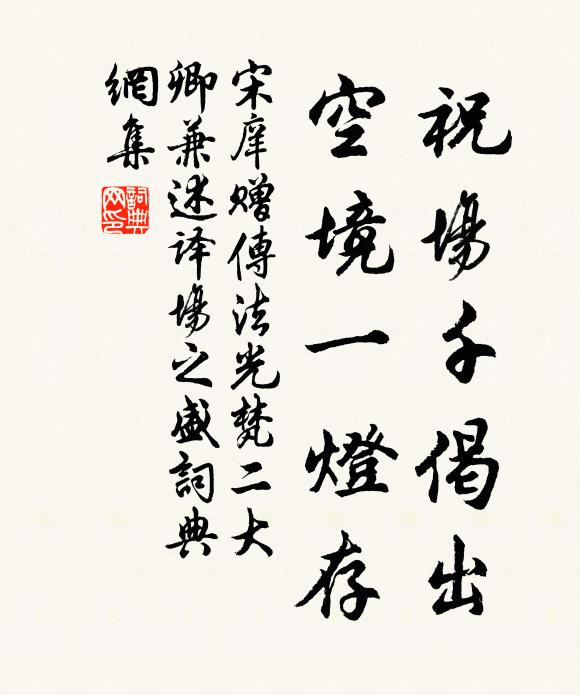 祝場千偈出
空境一燈存
宋庠赠傳法光梵二大
卿兼述译場之盛詞典
網集
詞典网印